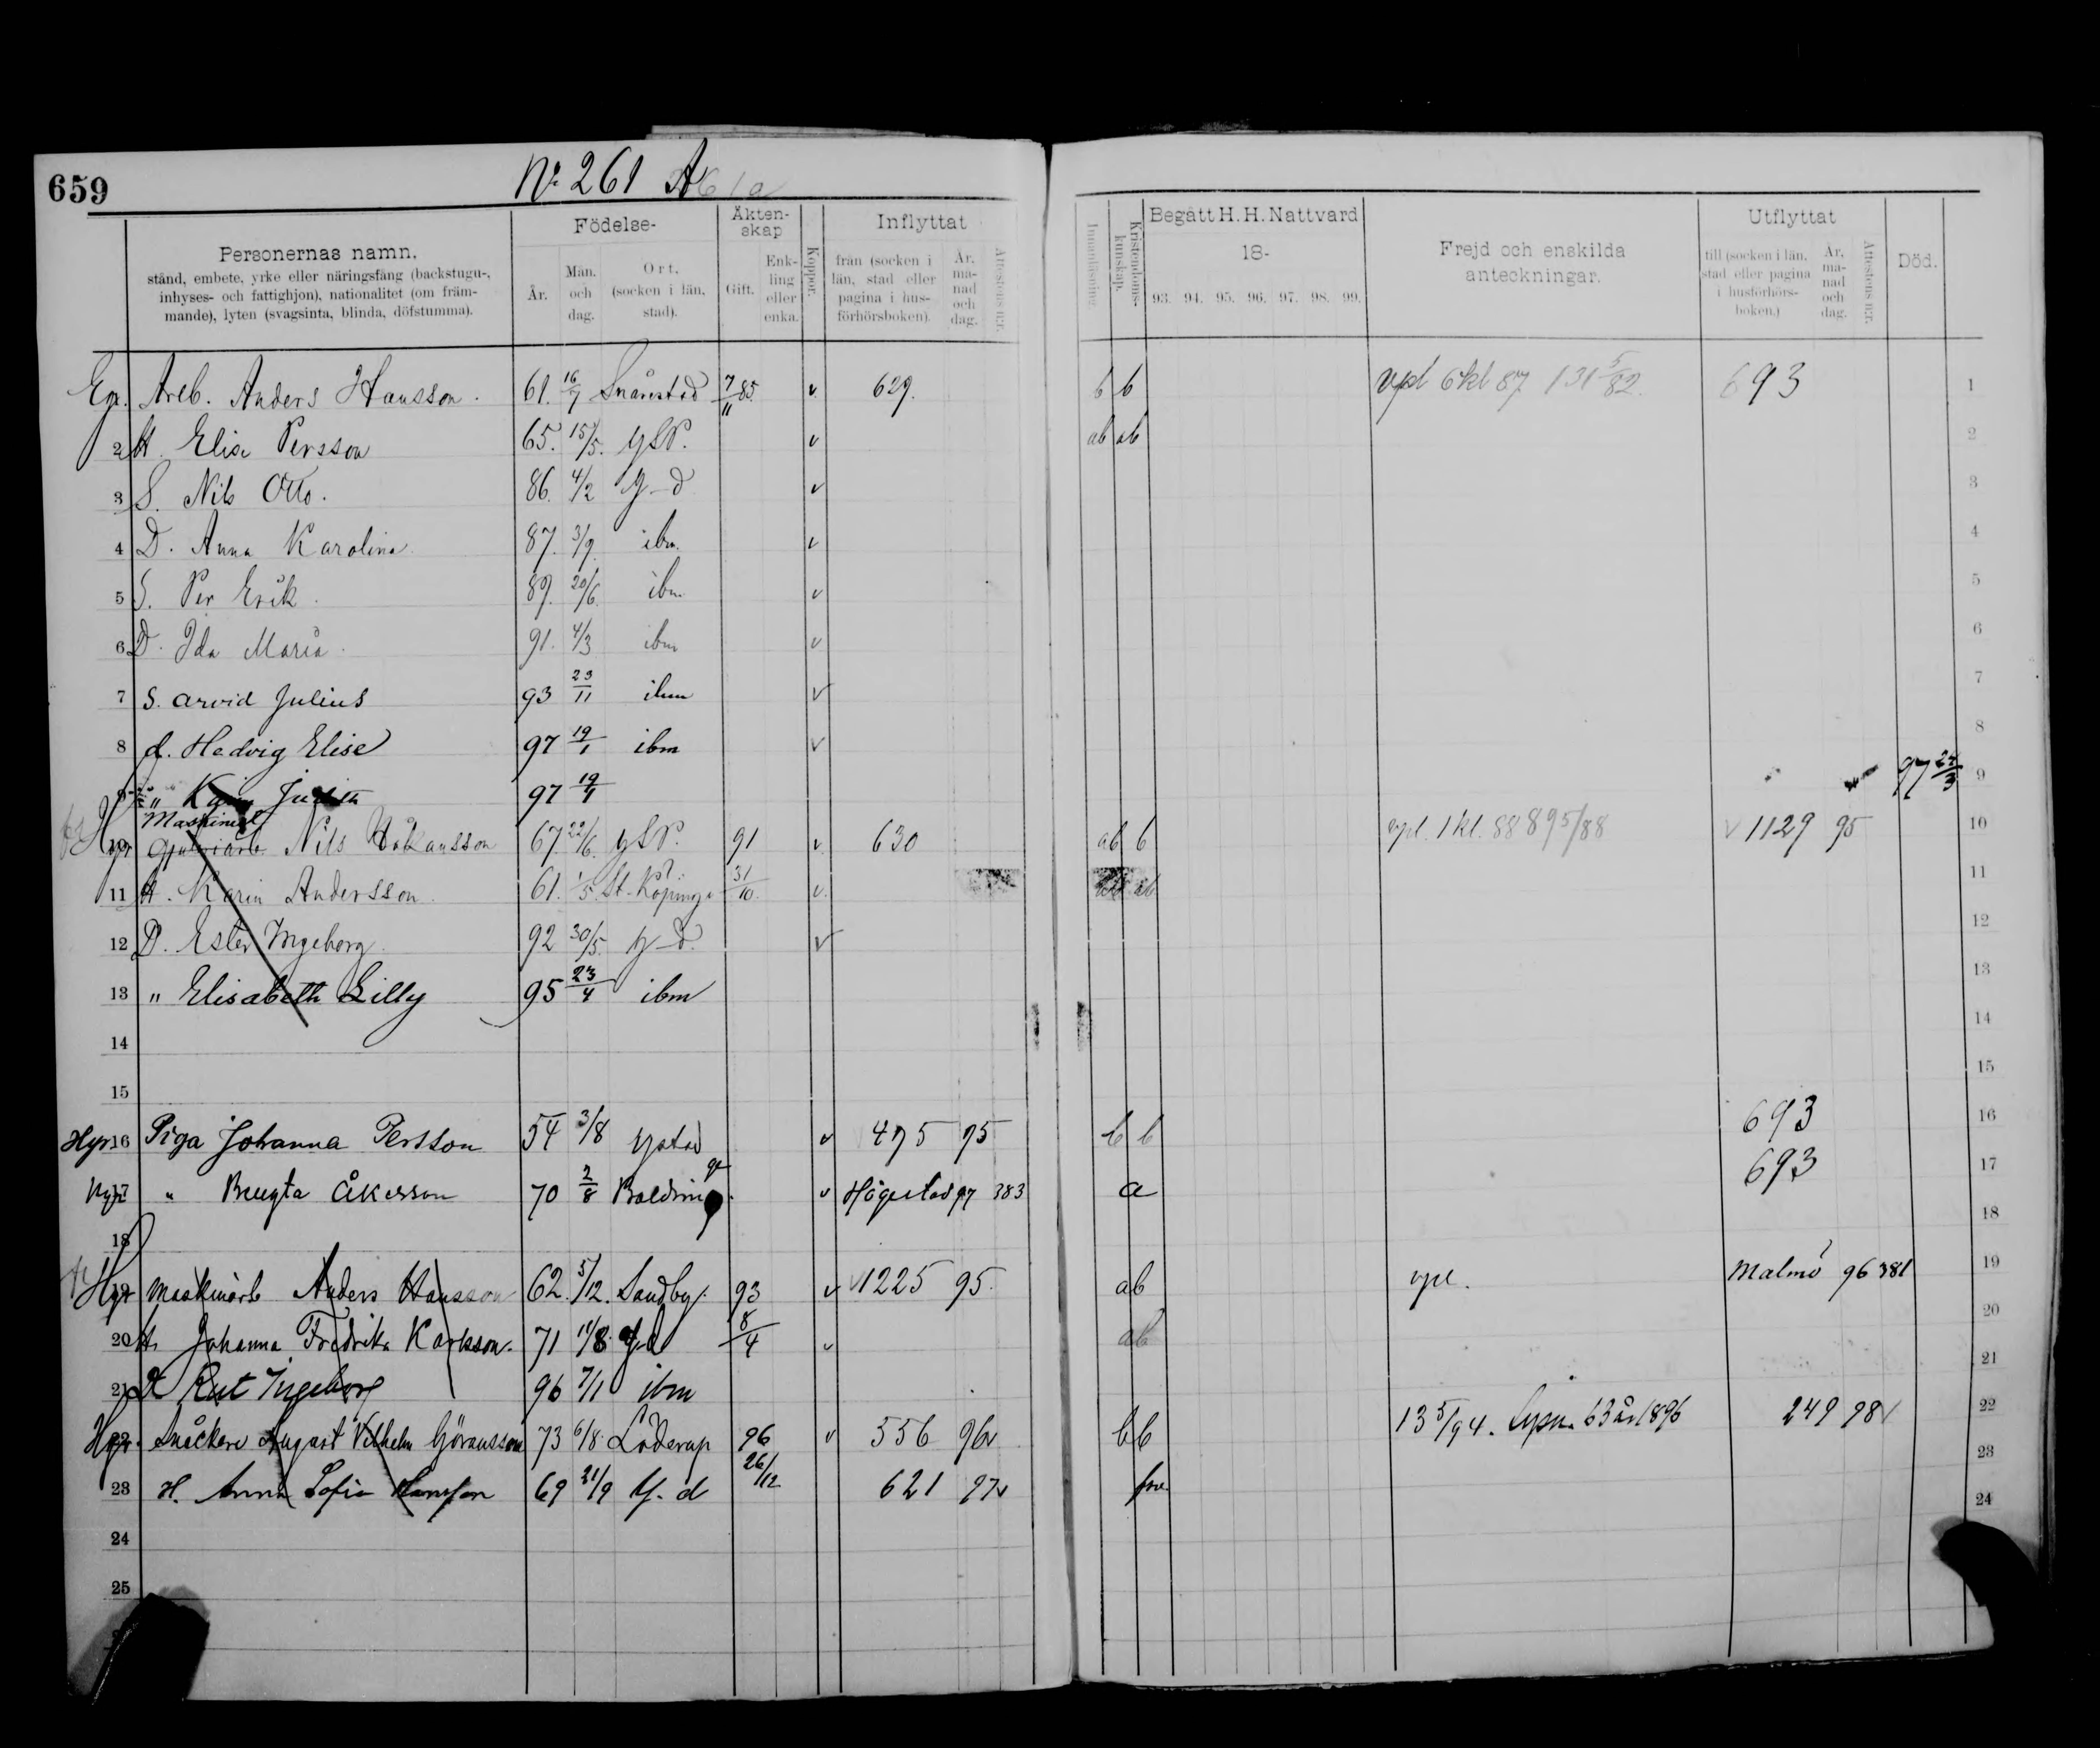 659
No 261 A 261a
Personernas namn,
stånd, embete, yrke eller näringsfång (backstugu-,
inhyses- och fattighjon), nationalitet (om främ-
mande), lyten (svagsinta, blinda, döfstumma).
Födelse-
År.
Mån.
och
dag.
Ort,
(socken i län,
stad).
Äkten-
skap
Gift.
Enk-
ling
eller
enka.
Koppor.
Inflyttat
från (socken i
län, stad eller
pagina i hus-
förhörsboken).
År,
må-
nad
och
dag.
Attestens n:r.
Innanläsning.
Kristendoms-
kunskap.
Begått H. H. Nattvard
18-
93. 94. 95. 96. 97. 98. 99.
Frejd och enskilda
anteckningar.
Utflyttat
till (socken i län,
stad eller pagina
i husförhörs-
boken.)
År,
må-
nad
och
dag.
Attestens n:r.
Död.
Eg. Arb. Anders Hansson. 61. 16/7 Snårestad 7/11 85. v. 629. b b vpl 6 kl 87 131 5/82. 693 1
2 H. Elise Persson 65. 15/5. YSP. v ab ab 2
3 S. Nils Otto. 86. 4/2 Y-d v 3
4 D. Anna Karolina. 87. 3/9. ibm. v 4
5 S. Per Erik. 89. 20/6. ibm v 5
6 D. Ida Maria. 91. 4/3 ibm v 6
7 S. Arvid Julius 93 23/11 ibm v 7
8 d. Hedvig Elise 97 19/1 ibm v 8
9 " Karin Judith 97 19/1 97 24/3 9
Maskinarb
Hyr 10 Gjuteriarb. Nils Håkansson 67. 22/6. YSP. 91 v. 630 ab b vpl. 1 kl. 88 89 5/88 v 1129 95 10
11 H. Karin Andersson. 61. 1/5. St. Köpinge 31/10. v. ab ab 11
12 D. Ester Ingeborg. 92 30/5. Y-d. v 12
13 " Elisabeth Lilly 95 23/4 ibm 13
14 14
15 15
Hyr. 16 Piga Johanna Persson 54 3/8 Ystad v 475 95 b b 693 16
Hyr. 17 " Bengta Åkesson 70 2/8 Baldringe v Högestad 97 383 a 693 17
18 18
Hyr 19 Maskinarb Anders Hansson 62. 5/12. Sandby. 93 v v 1225 95. ab vpl. Malmö 96 381 19
20 H. Johanna Fredrika Karlsson. 71 11/8. Y-d 8/4 v ab 20
21 D Rut Ingeborg 96 7/1 ibm 21
Hyr. 22 Snickare August Vilhelm Göransson 73 6/8. Löderup 96 v 556 96v b b 13 5/94. 63 år 1896 249 98 22
23 H. Anna Sofia Hansson 69 21/9 Y-d 26/12 621 97v 23
24 24
25